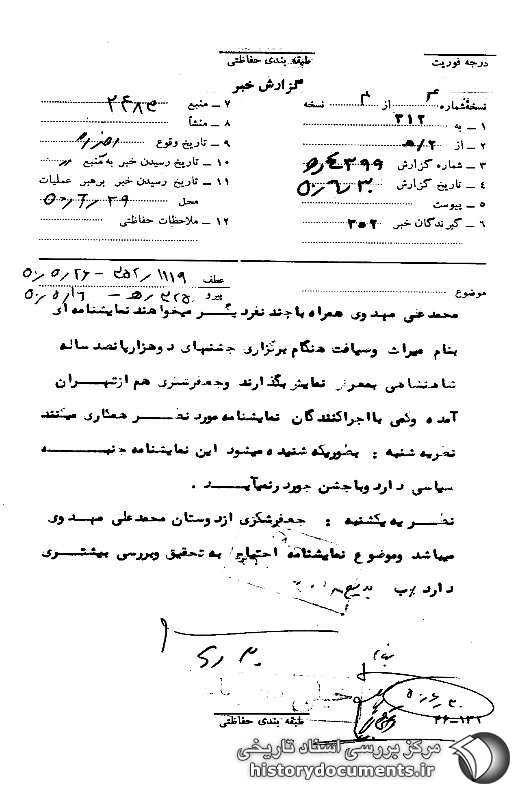 طبقه بندی حفاظتی
درجه فوریت
گزارش خبر
نسخه شماره ۴ از ۴ نسخه
۱ ـ به ۳۱۲
۲ ـ از ۲/هـ
۳ ـ شماره گزارش
۴ ـ تاریخ گزارش ۵۰/۶/۳۰
۵ ـ پیوست
۶ ـ گیرندگان خبر ۳۵۲
۷ ـ منبع ۲۴۸۳
۸ ـ منشأ
۹ ـ تاریخ وقوع اخیراً
۱۰ ـ تاریخ رسیدن خبر به منبع
۱۱ ـ تاریخ رسیدن خبر برهبر عملیات
محل ۵۰/۶/۲۹
۱۲ ـ ملاحظات حفاظتی
موضوع
عطف ۳۵۲/۱۱۱۹ – ۵۰/۵/۲۶
پیرو
محمدعلی مهدوی همراه با چند نفر دیگر میخواهند نمایشنامه ای
بنام میراث وضیافت هنگام برگزاری جشنهای دوهزارپانصد ساله
شاهنشاهی بمعرض نمایش بگذارند وجعفرشکری هم ازتهران
آمده وفعلا بااجراکنندگان نمایشنامه مورد نظر همکاری میکند
نظریه شنبه : بطوریکه شنیده میشود این نمایشنامه جنبه
سیاسی دارد وباجشن جوردرنمیآید .
نظریه یکشنبه : جعفرشکری ازدوستان محمدعلی مهدوی
میباشد وموضوع نمایشنامه احتیاج به تحقیق وبررسی بیشتری
دارد
۵۰/۶/۳۰
۲۶–۱۳۲
طبقه بندی حفاظتی
مرکز بررسی اسناد تاریخی
historydocuments.ir